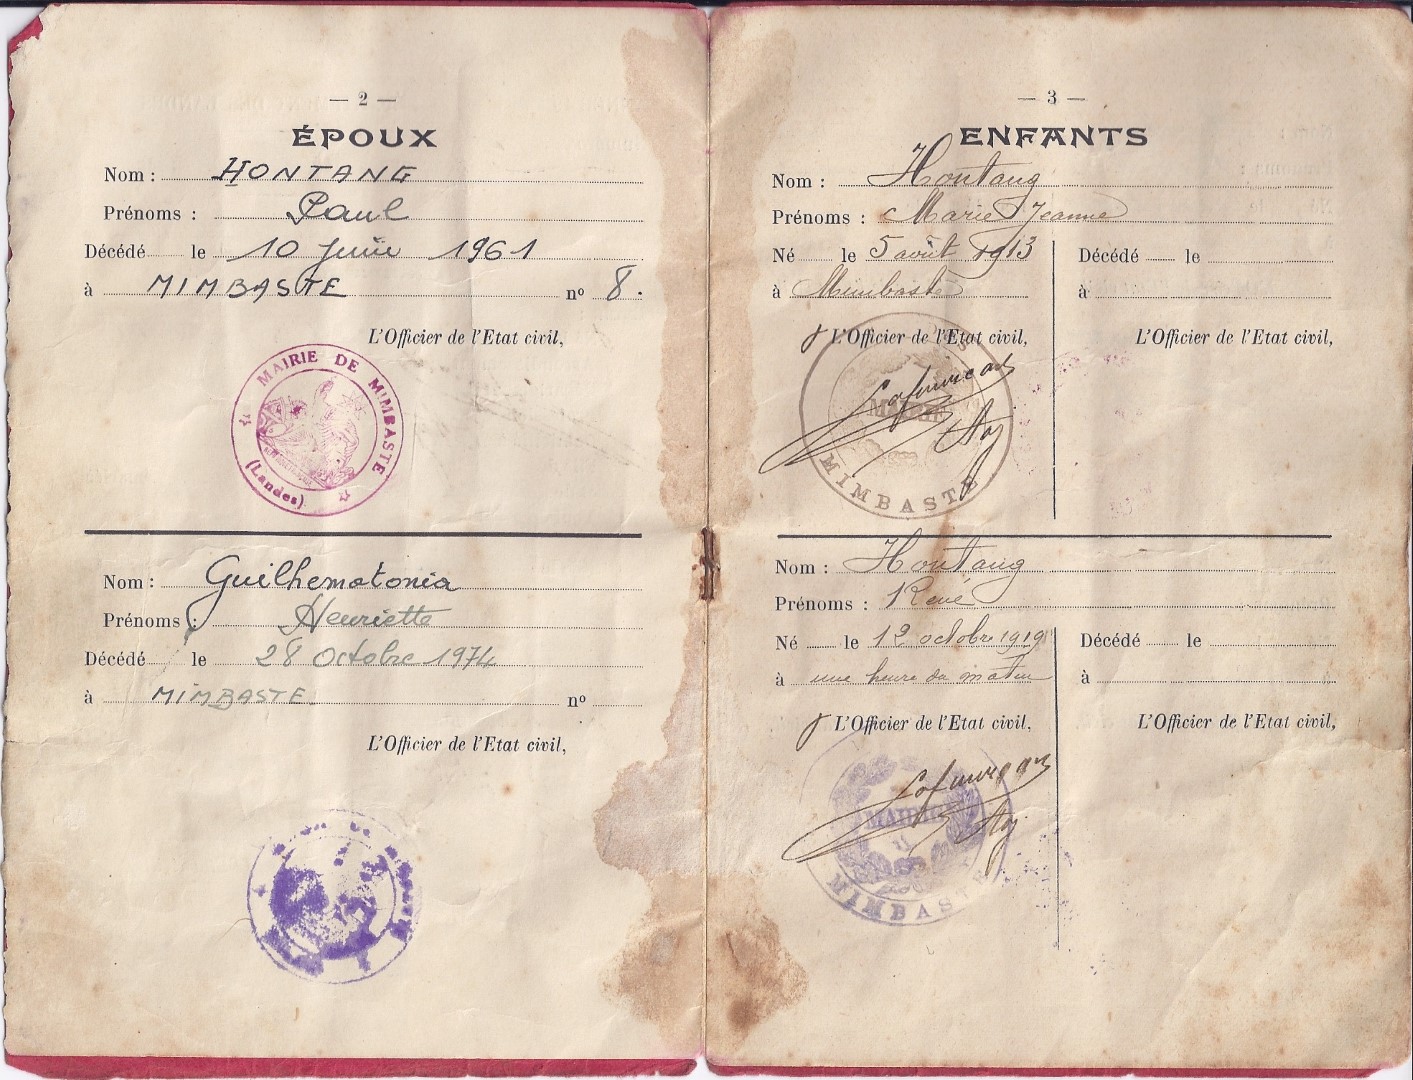 — 2 —
ÉPOUX
Nom : HONTANG
Prénoms : Paul
Décédé le 10 Juin 1961
à MIMBASTE nº 8.
L'Officier de l'Etat civil,
MAIRIE DE MIMBASTE
(Landes)
Nom : Guilhematonia
Prénoms : Henriette
Décédé le 28 Octobre 1974
à MIMBASTE nº
L'Officier de l'Etat civil,
— 3 —
ENFANTS
Nom : Hontang
Prénoms : Marie Jeanne
Né le 5 août 1913
Décédé le
à Mimbaste
à
L'Officier de l'Etat civil,
L'Officier de l'Etat civil,
MAIRIE
MIMBASTE
Nom : Hontang
Prénoms : René
Né le 12 octobre 1919
Décédé le
à une heure du matin
à
L'Officier de l'Etat civil,
L'Officier de l'Etat civil,
MAIRIE
MIMBASTE